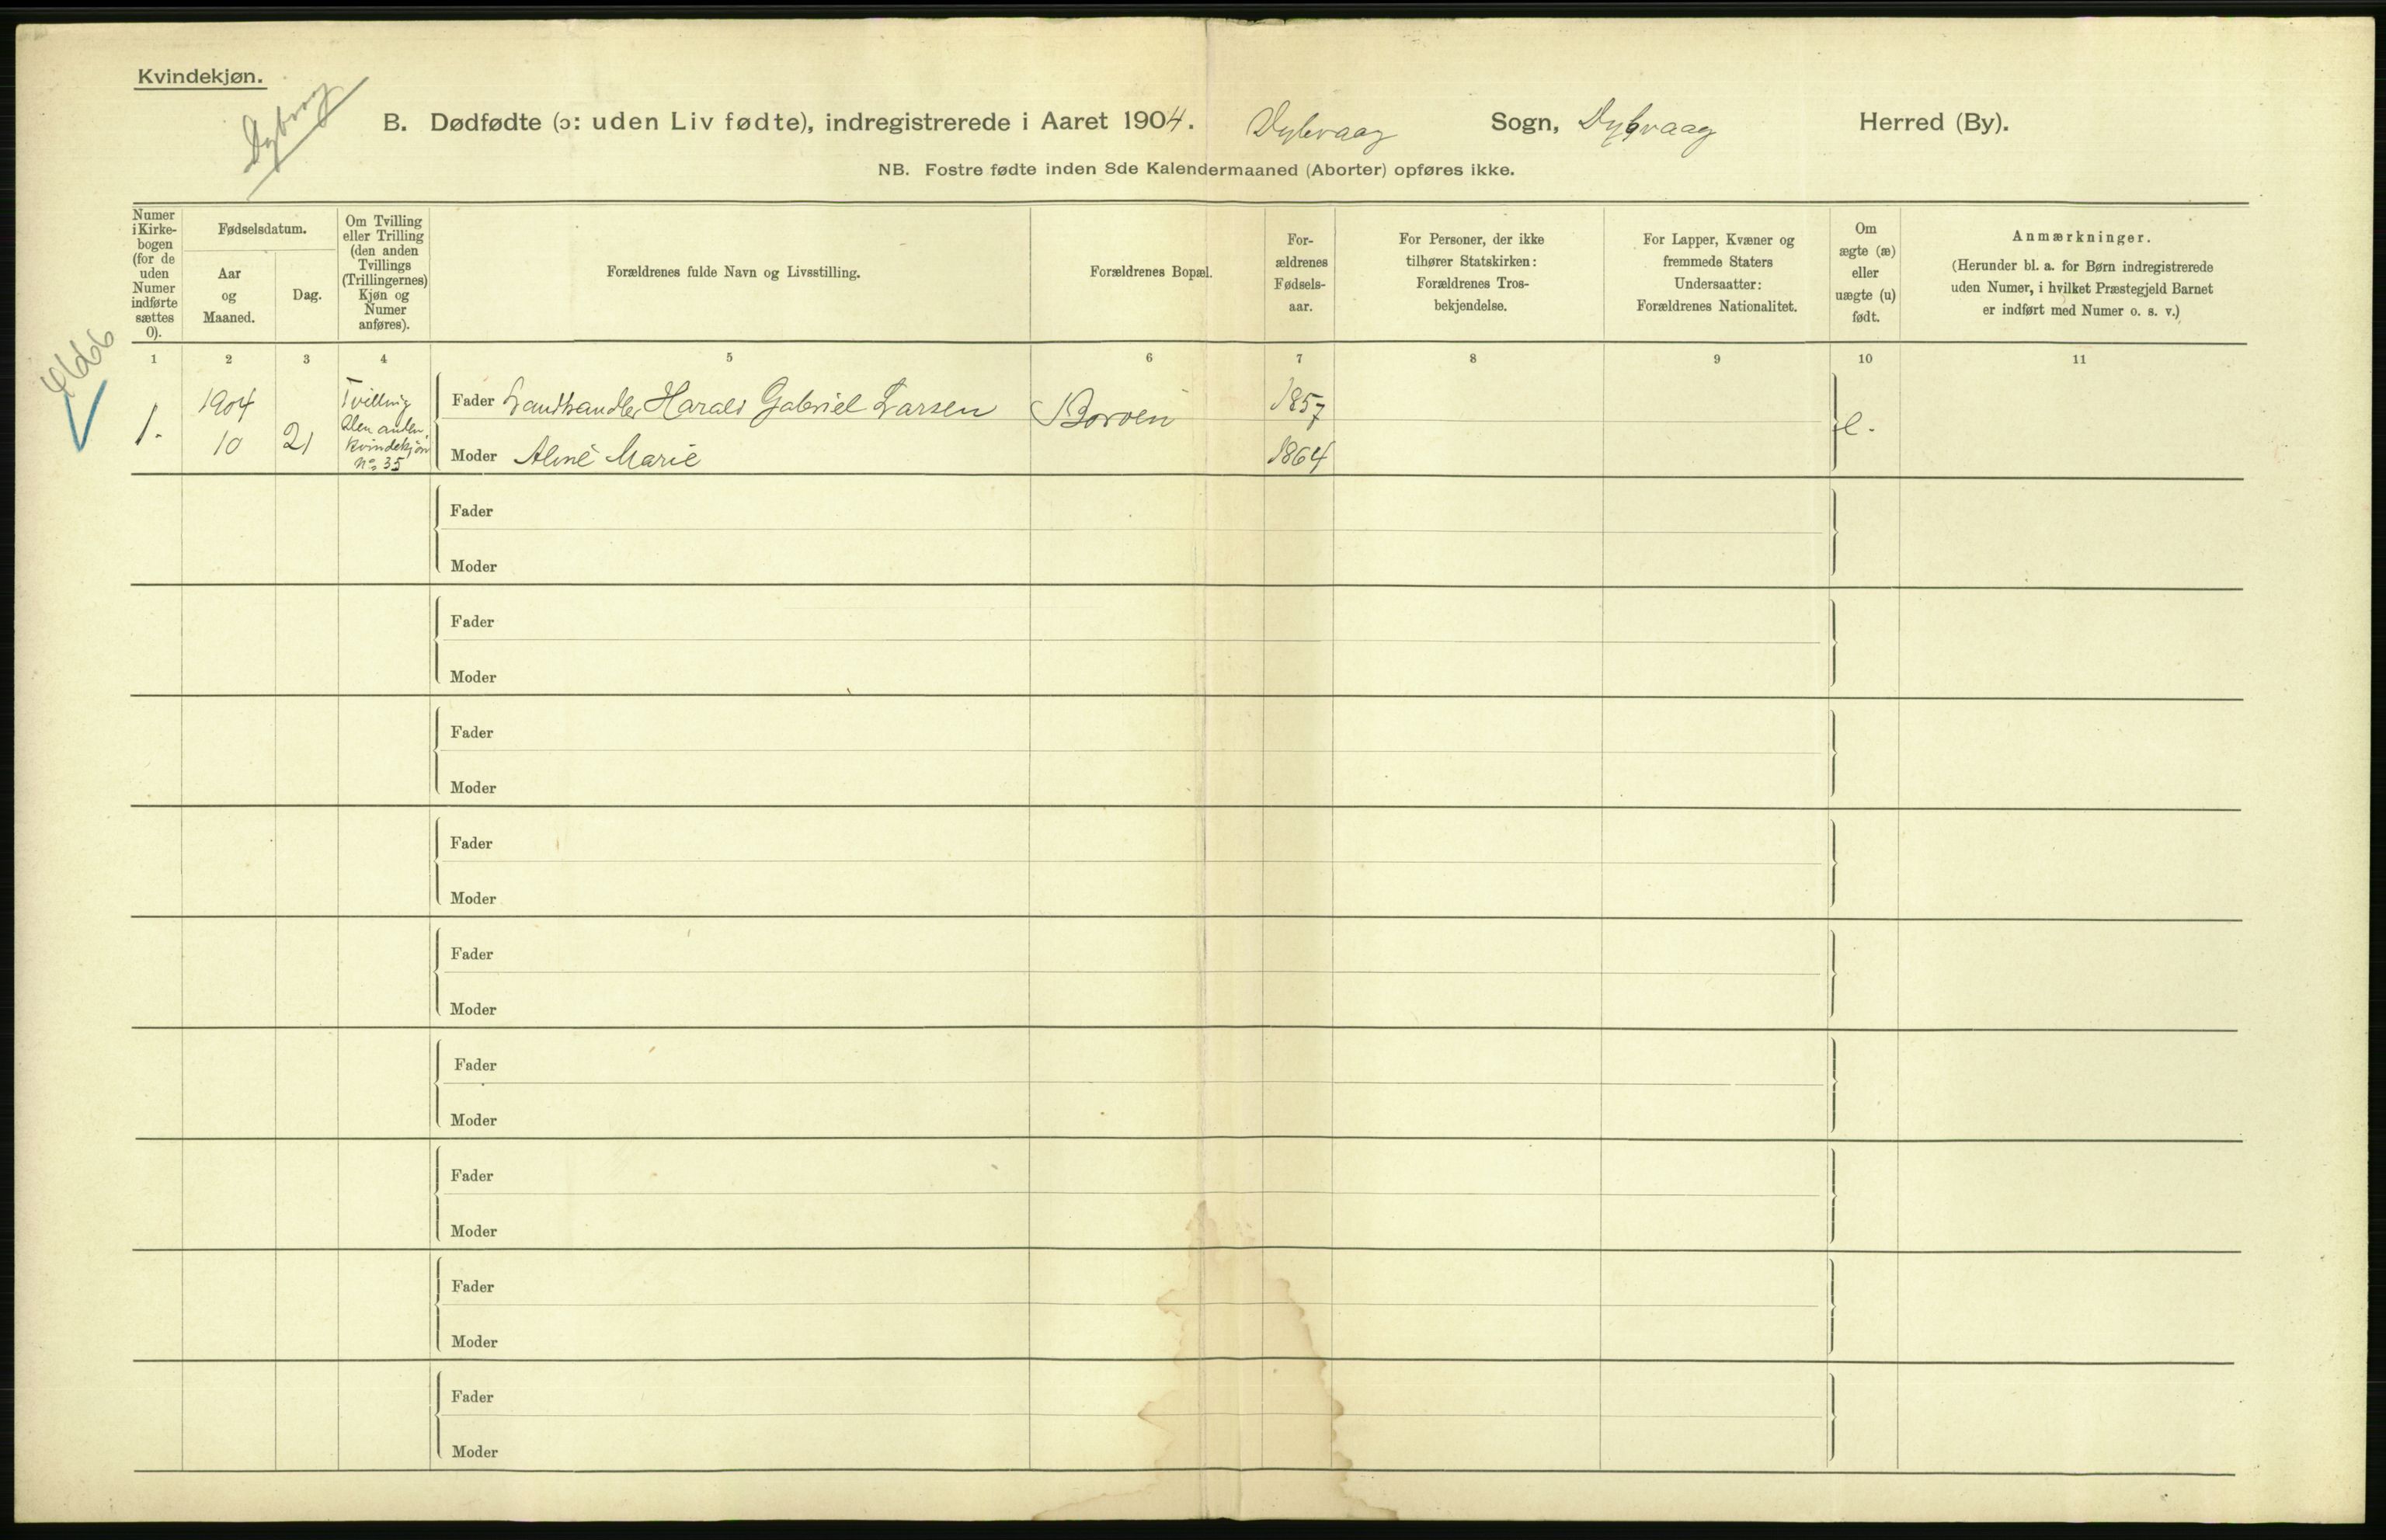 Kvindekjøn.
Dybvag
B. Dødfødte (ɔ: uden Liv fødte), indregistrerede i Aaret 1904. Dybvaag Sogn, Dybvaag Herred (By).
NB. Fostre fødte inden 8de Kalendermaaned (Aborter) opføres ikke.
Numer
i Kirke-
bogen
(for de
uden
Numer
indførte
sættes
0).
Fødselsdatum.
Aar
og
Maaned.
Dag.
Om Tvilling
eller Trilling
(den anden
Tvillings
(Trillingernes)
Kjøn og
Numer
anføres).
Forældrenes fulde Navn og Livsstilling.
Forældrenes Bopæl.
For-
ældrenes
Fødsels-
aar.
For Personer, der ikke
tilhører Statskirken:
Forældrenes Tros-
bekjendelse.
For Lapper, Kvæner og
fremmede Staters
Undersaatter:
Forældrenes Nationalitet.
Om
ægte (æ)
eller
uægte (u)
født.
Anmærkninger.
(Herunder bl. a. for Børn indregistrerede
uden Numer, i hvilket Præstegjeld Barnet
er indført med Numer o. s. v.)
1 2 3 4 5 6 7 8 9 10 11
1.
1904
10
21
Tvilling
Den anden
Kvindekjøn
No 35
Fader Landhandler Harald Gabriel Larsen
Moder Aline Marie
Borøen
1857
1864
Fader
Moder
Fader
Moder
Fader
Moder
Fader
Moder
Fader
Moder
Fader
Moder
Fader
Moder
Fader
Moder
Fader
Moder